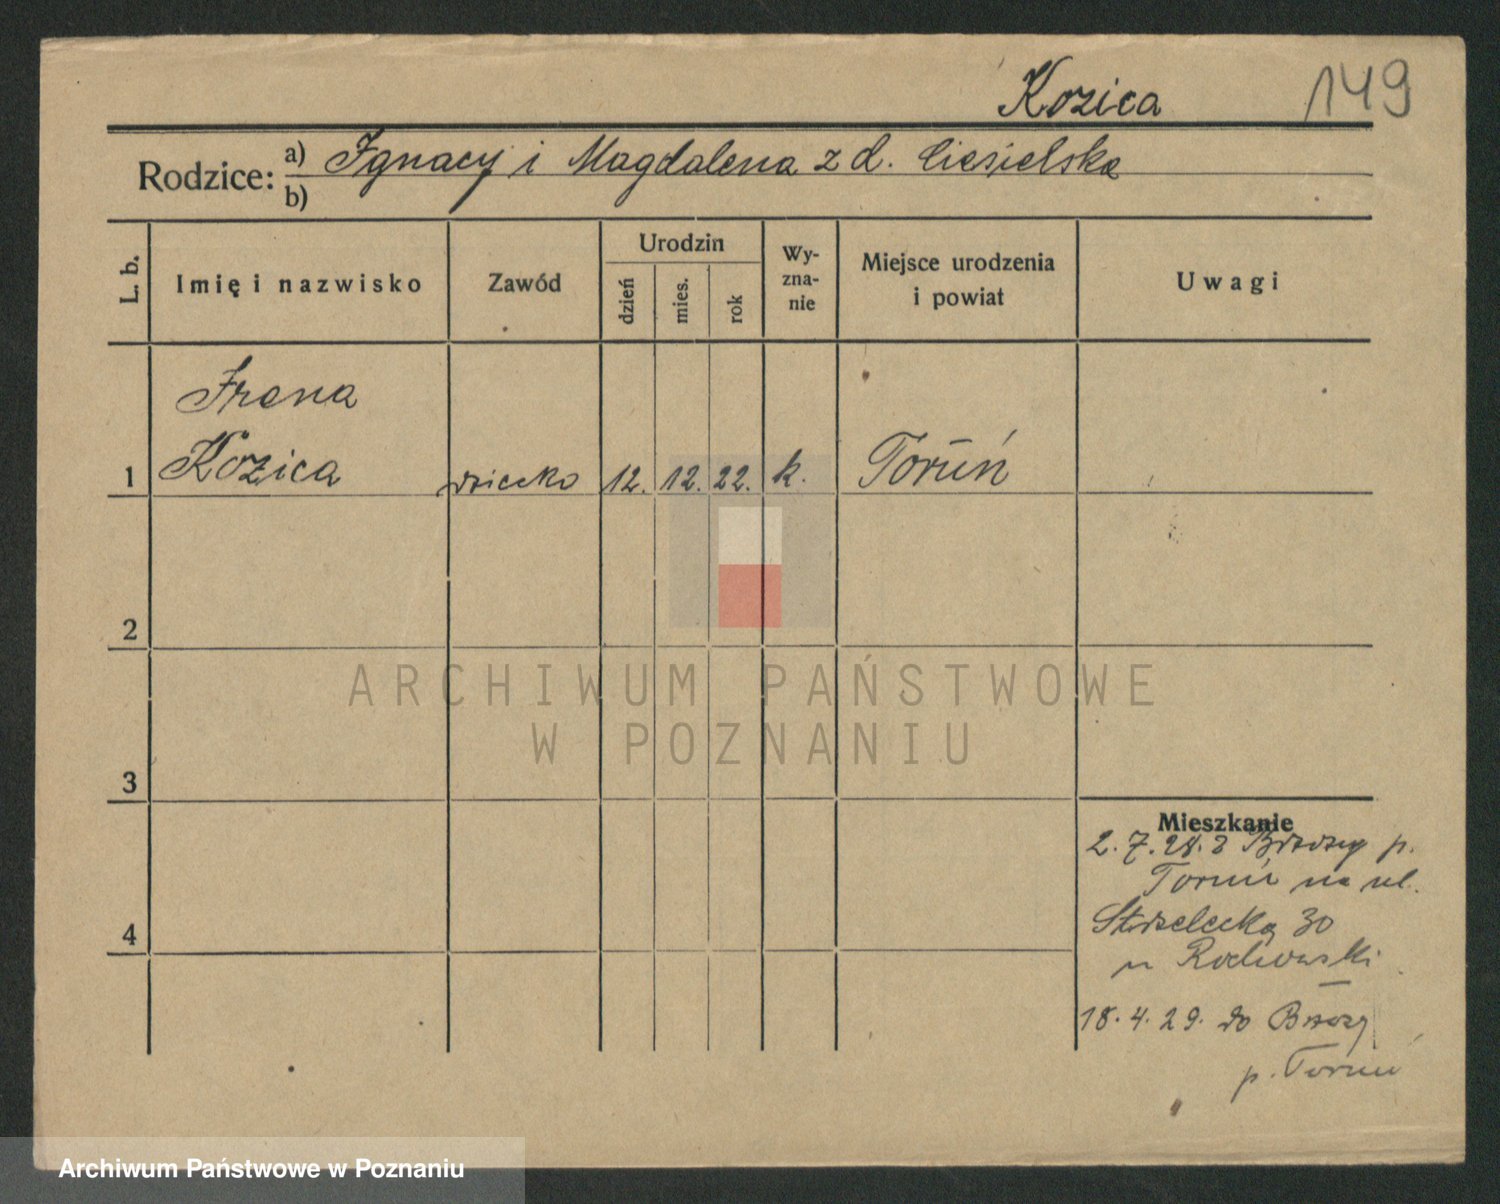 Kozica
149
Rodzice:
a) Ignacy i Magdalena z d. Ciesielska
b)
L. b.
Imię i nazwisko
Zawód
Urodzin
dzień
mies.
rok
Wy-
zna-
nie
Miejsce urodzenia
i powiat
Uwagi
Irena
1 Kozica dziecko 12. 12. 22. k. Toruń
2
3
4
Mieszkanie
2. 7. 28. z p.
Toruń na ul.
Strzelecką 30
u
18. 4. 29. do
p. Toruń
ARCHIWUM PAŃSTWOWE
W POZNANIU
Archiwum Państwowe w Poznaniu